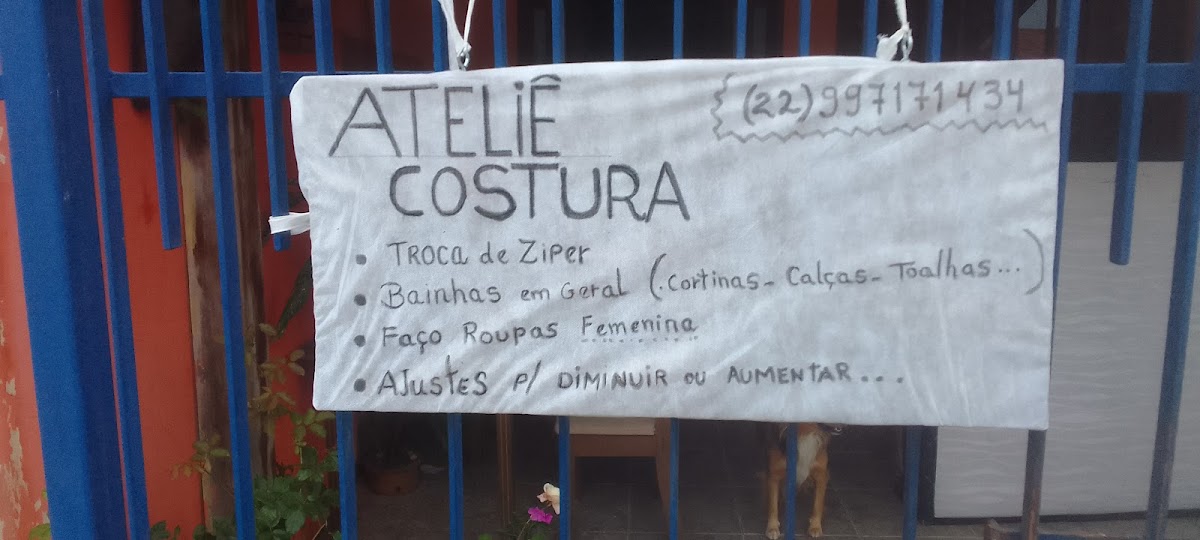 ATELIÊ
(22)997171434
COSTURA
• TROCA de ZIPER
• Bainhas em Geral (.Cortinas - Calças - Toalhas...)
• Faço Roupas Femenina
• AJUSTES P/ DIMINUIR OU AUMENTAR...